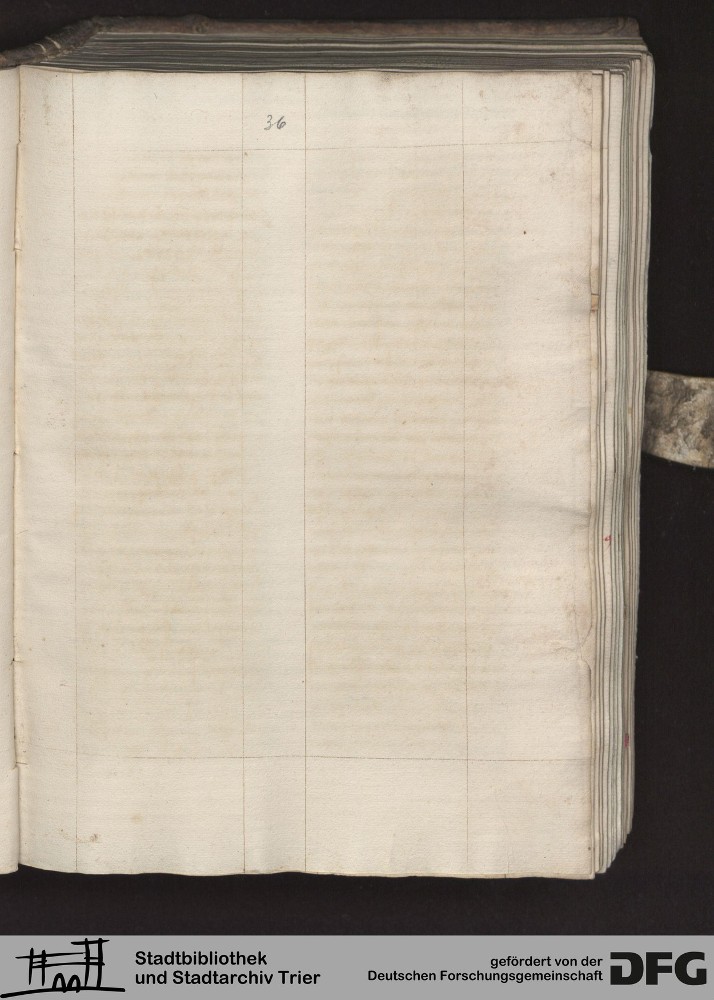 36
Stadtbibliothek
und Stadtarchiv Trier
gefördert von der
Deutschen Forschungsgemeinschaft
DFG